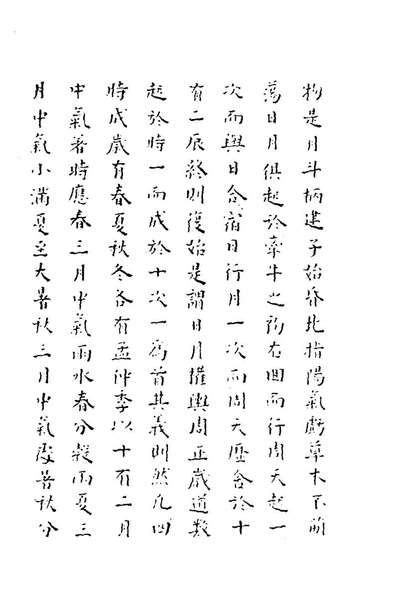 物是月斗柄建子始昏北指陽氣虧草木不萌
蕩日月俱起於牽牛之初右回而行周天起一
次而與日合宿日行月一次而周天歷舍於十
有二辰終則復始是謂日月權輿周正歲道數
起於時一而成於十次一為首其義則然凡四
時成歲有春夏秋冬各有孟仲季以十有二月
中氣著時應春三月中氣雨水春分穀雨夏三
月中氣小滿夏至大暑秋三月中氣處暑秋分